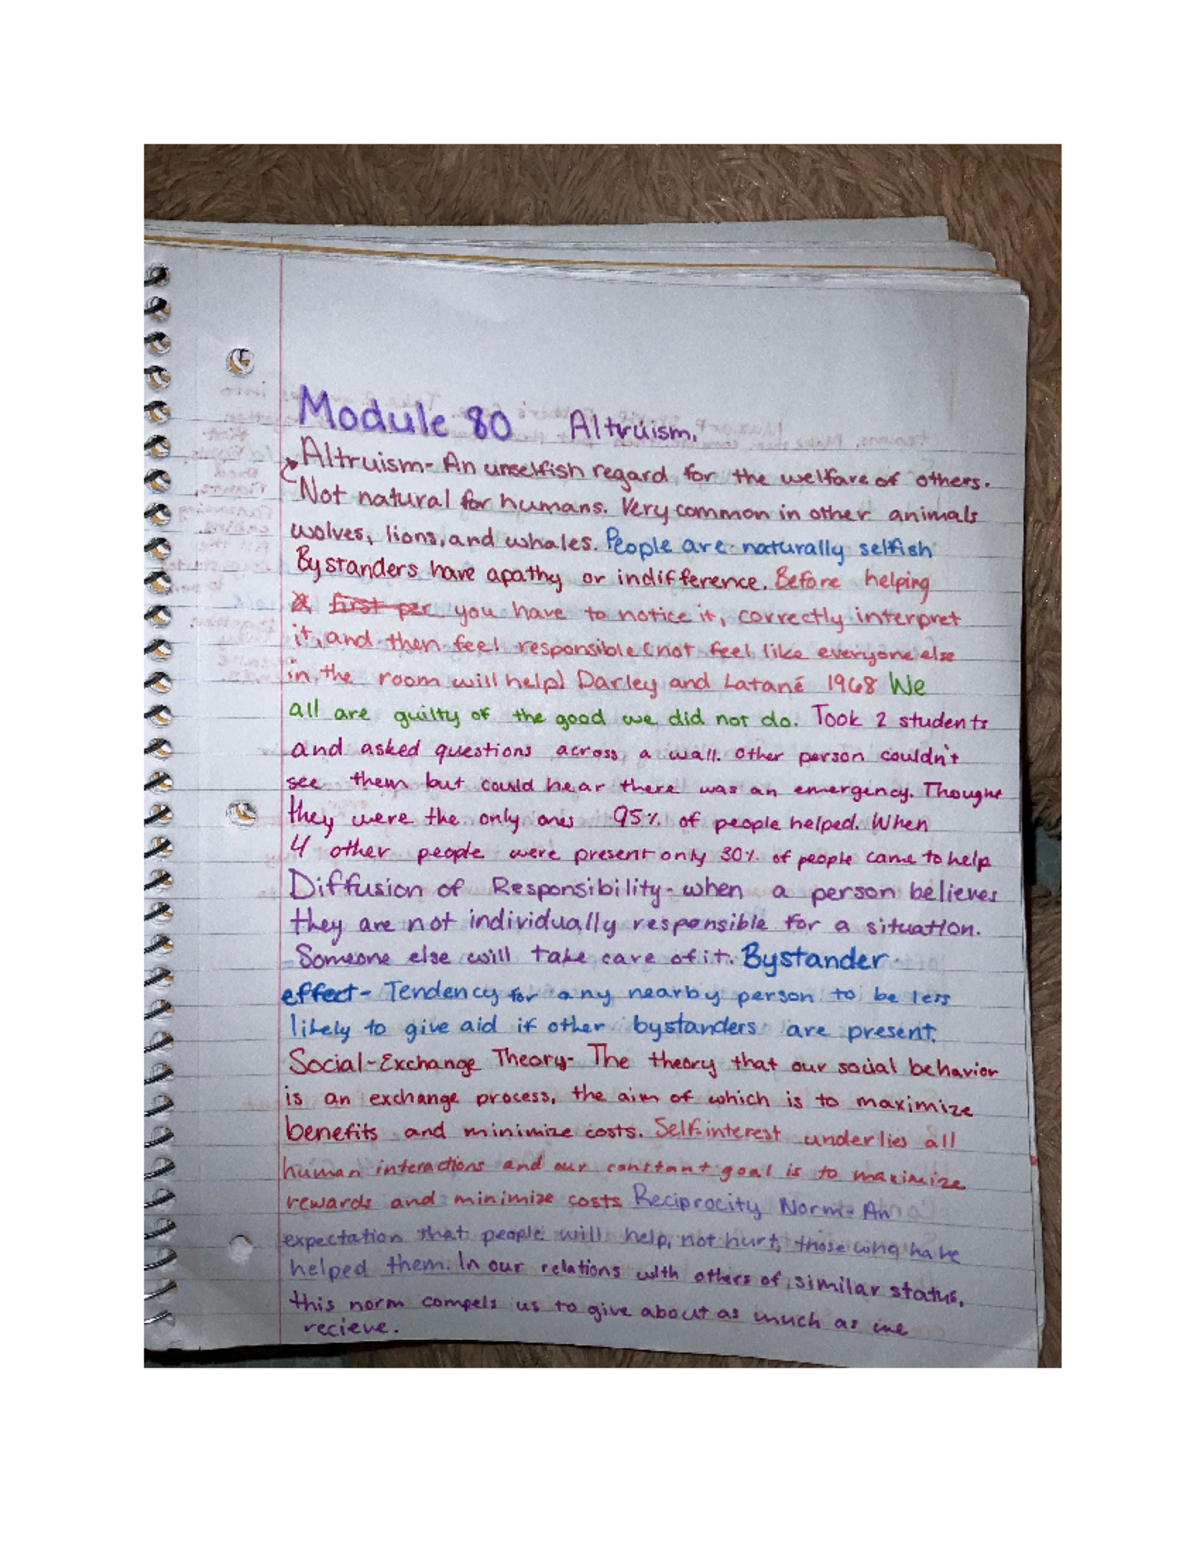 Module 80 Altruism.
Altruism- An unselfish regard for the welfare of others.
Not natural for humans. Very common in other animals
wolves, lions, and whales. People are naturally selfish
Bystanders have apathy or indifference. Before helping
first per you have to notice it, correctly interpret
it, and then feel responsible (not feel like everyone else
in the room will help) Darley and Latané 1968 We
all are guilty of the good we did not do. Took 2 students
and asked questions across a wall. Other person couldn't
see them but could hear there was an emergency. Thought
they were the only ones 95% of people helped. When
4 other people were present only 30% of people came to help
Diffusion of Responsibility- when a person believes
they are not individually responsible for a situation.
Someone else will take care of it. Bystander
effect- Tendency for any nearby person to be less
likely to give aid if other bystanders are present.
Social-Exchange Theory- The theory that our social behavior
is an exchange process, the aim of which is to maximize
benefits and minimize costs. Self-interest underlies all
human interactions and our constant goal is to maximize
rewards and minimize costs Reciprocity Norm- An
expectation that people will help, not hurt, those who have
helped them. In our relations with others of similar status,
this norm compels us to give about as much as we
recieve.